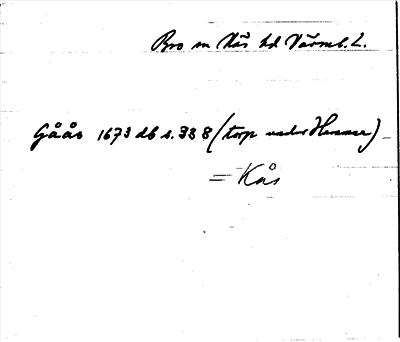 Bro sn Näs hd Värml. L.
Gåås 1673 db s. 338 (torp under Hemme)
= Kås